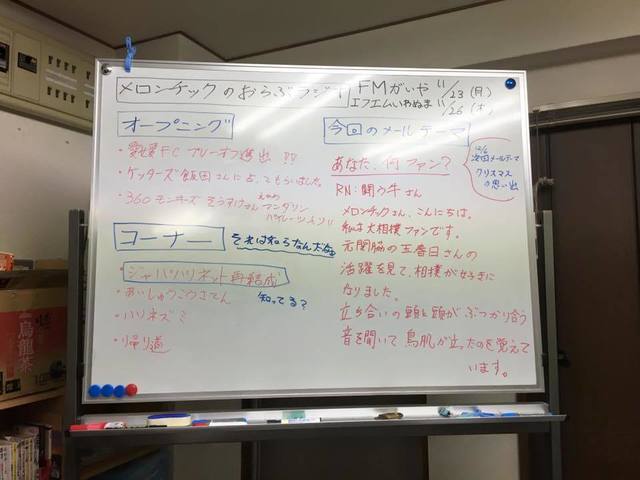 メロンチックのおらぶラジオ
FMがいや 11/23(月)
エフエムいわぬま 11/26(木)
オープニング
・愛媛FCプレーオフ進出!!
・ゲッターズ飯田さんに占ってもらいました。
・360°モンキーズ そうすけさん
えひめ
マンダリン
パイレーツ入り!!
コーナー
それは知らなんだね
・ジャパハリネット再結成
・あいしゅうこうさてん
知ってる?
・ハリネズミ
・帰り道
今回のメールテーマ
あなた、何ファン?
次回メールテーマ
クリスマス
の思い出
RN:闘う牛さん
メロンチックさん、こんにちは。
私は大相撲ファンです。
元関脇の玉春日さんの
活躍を見て、相撲が好きに
なりました。
立ち合いの頭と頭がぶつかり合う
音を聞いて鳥肌が立ったのを覚えて
います。
烏龍茶